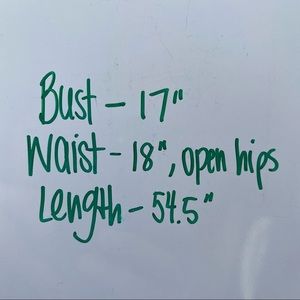 Bust - 17"
Waist - 18", open hips
Length - 54.5"